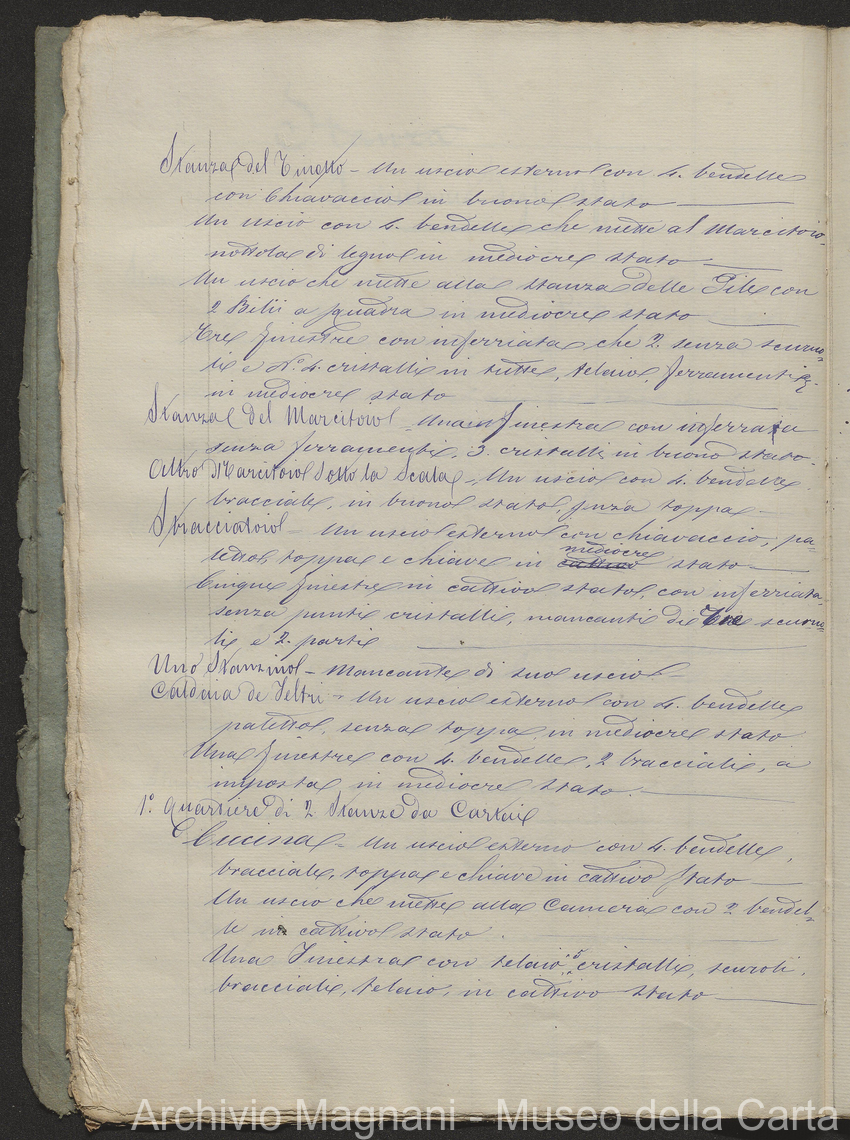 Stanza del Tinotto - Un uscio esterno con 4. bendelle
con Chiavaccio in buono stato
Un uscio con 4. bendelle che mette al Marcitoio,
nottola di legno in mediocre stato
Un uscio che mette alla stanza delle Pile con
2 Bilii a squadra in mediocre stato
Tre finestre con inferriata che 2. senza scuro-
li e N° 4. cristalli in tutte, telaio, ferramenti
in mediocre stato
Stanza del Marcitoio - Una finestra con inferrata
senza ferramenti, 3. cristalli in buono stato.
Altro Marcitoio Sotto la Scala - Un uscio con 4. bendelle
bracciale, in buono stato, senza toppa -
Stracciatoio - Un uscio esterno con chiavaccio, pa-
letto, toppa e chiave in cattivo mediocre stato
Cinque finestre in cattivo stato, con inferriata
senza punti cristalli, mancanti di Tre scuro-
li e 2. parti
Uno Stanzino - Mancante di suo uscio -
Caldaia de Feltri - Un uscio esterno con 4. bendelle
paletto, senza toppa, in mediocre stato
Una finestre con 4. bendelle, 2 bracciali, a
imposta in mediocre stato.
1°. Quartiere di 2 Stanze da Cartai
Cucina - Un uscio esterno con 4. bendelle,
bracciale, toppa e chiave in cattivo stato
Un uscio che mette alla Camera con 2 bendel-
le in cattivo stato
Una Finestra con telaio cristalli, scuroli,
bracciali, telaio, in cattivo stato
Archivio Magnani - Museo della Carta